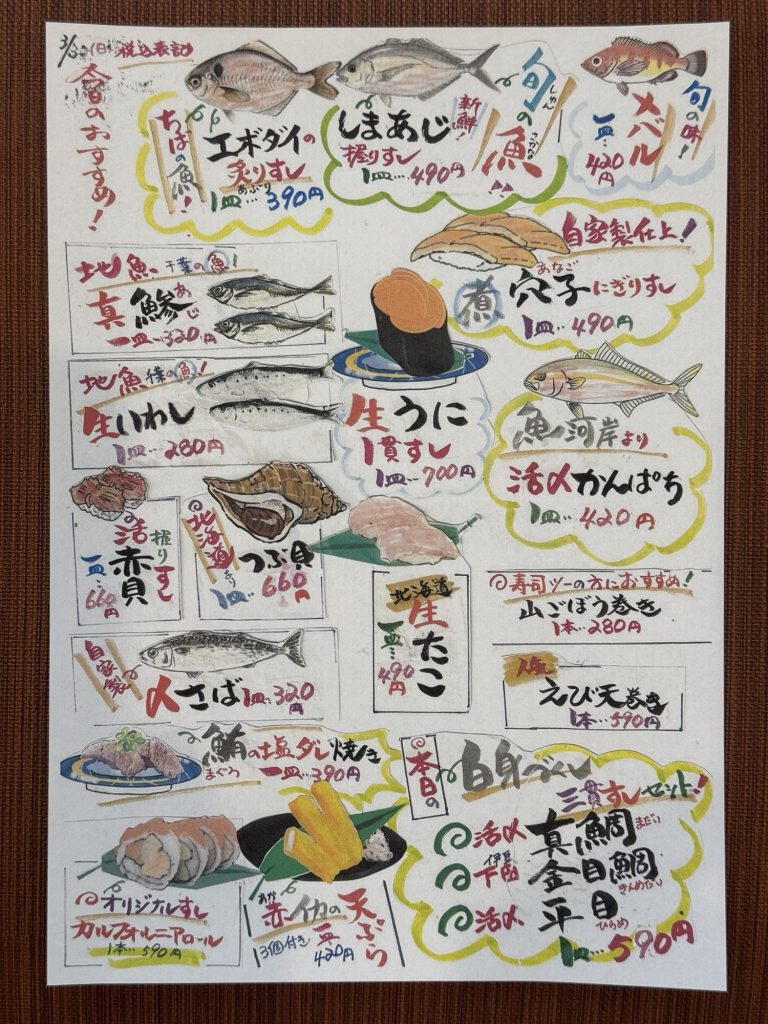 3/30(日)税込表記
今日のおすすめ!
ちばの魚!
エボダイの
炙りすし
あぶり
1皿…390円
しまあじ
新鮮!
握りすし
1皿…490円
旬の魚
しゅん
さかな
旬の味!
メバル
一皿…420円
自家製仕上!
煮穴子にぎりすし
あなご
1皿…490円
地魚千葉の魚!
真鯵
あじ
一皿…320円
地魚千葉の魚!
生いわし
1皿…280円
生うに
1貫すし
1皿…700円
魚河岸より
活〆かんぱち
1皿…420円
活赤貝
握りすし
一皿…660円
北海道より
つぶ貝
1皿…660円
北海道
生たこ
一皿…490円
寿司ツーの方におすすめ!
山ごぼう巻き
1本…280円
人気
えび天巻き
1本…590円
自家製
〆さば1皿…320円
鮪の塩ダレ焼き
まぐろ
一皿…390円
オリジナルすし
カルフォルニアロール
1本…590円
赤イカの天ぷら
あか
3個付き
一皿420円
本日の
白身づくし
三貫すしセット!
活〆真鯛
まだい
伊豆
下田金目鯛
きんめだい
活〆平目
ひらめ
1皿…590円